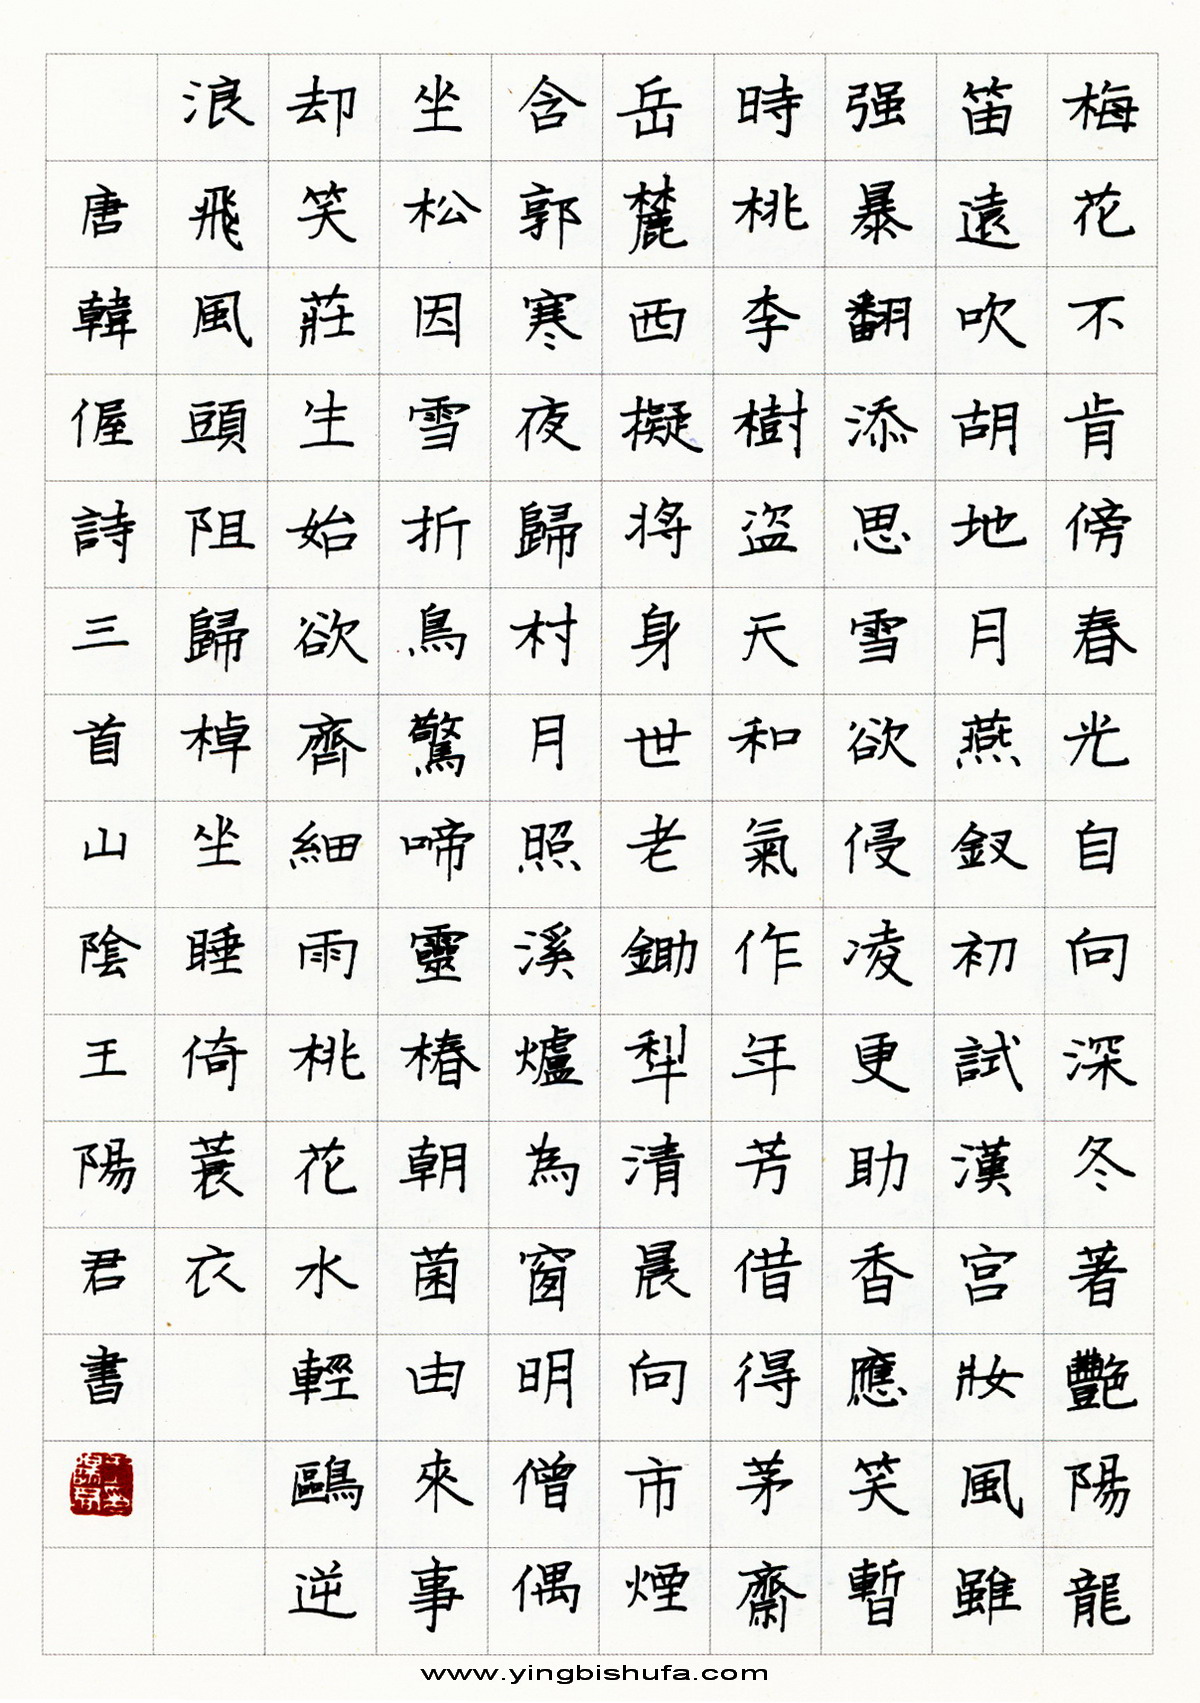 梅花不肯傍春光自向深冬著艷陽龍
笛遠吹胡地月燕釵初試漢宮妝風雖
强暴翻添思雪欲侵凌更助香應笑暫
時桃李樹盜天和氣作年芳借得茅齋
岳麓西擬將身世老鋤犁清晨向市煙
含郭寒夜歸村月照溪爐為窗明僧偶
坐松因雪折鳥驚啼靈椿朝菌由來事
却笑莊生始欲齊細雨桃花水輕鷗逆
浪飛風頭阻歸棹坐睡倚蓑衣
唐韓偓詩三首山陰王陽君書
www.yingbishufa.com